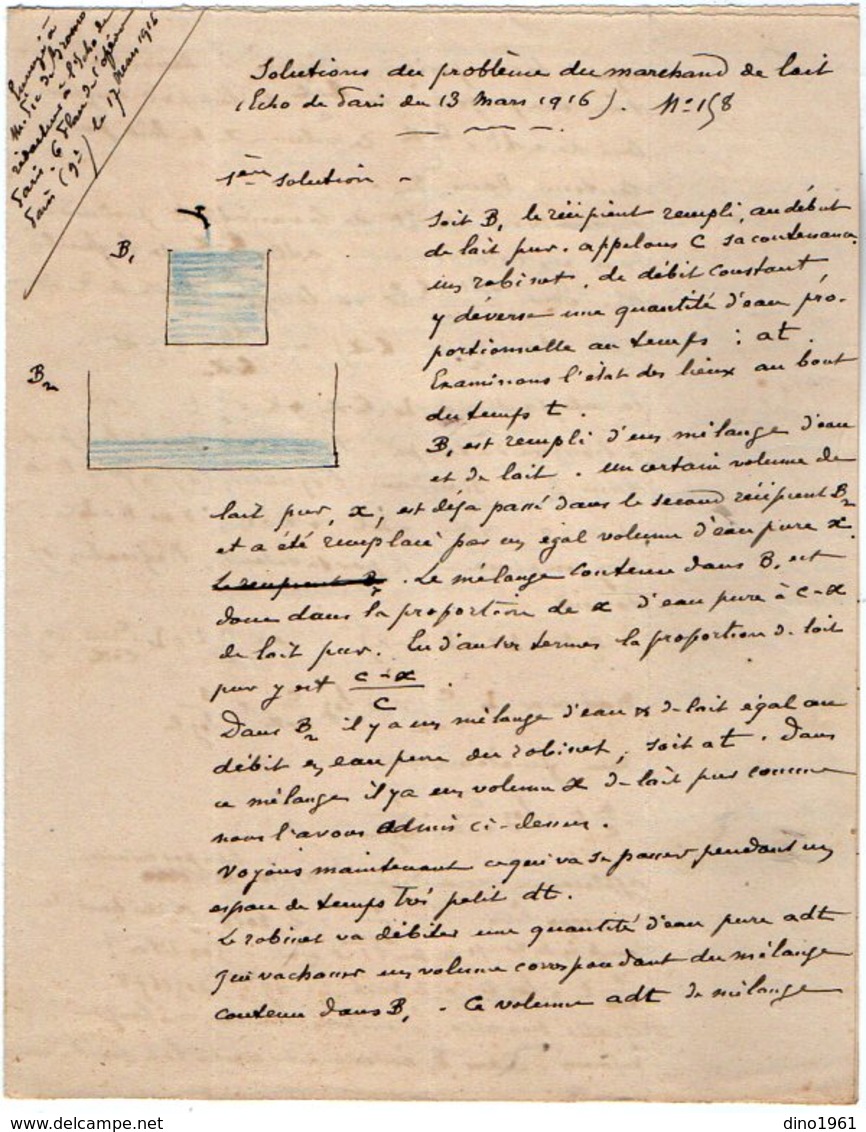 Envoyé à
Mr. Pic de Bronne
rédacteur à l'Echo de
Paris. 6 Place de l'Opéra
Paris (9e) le 17 Mars 1916
Solutions du problème du marchand de lait
(Echo de Paris du 13 Mars 1916). No 158
1ère Solution -
B1
B2
Soit B1 le récipient rempli, au début
de lait pur. appelons C sa contenance.
un robinet, de débit constant,
y déverse une quantité d'eau pro-
portionnelle au temps : at.
Examinons l'état des lieux au bout
du temps t.
B1 est rempli d'un mélange d'eau
et de lait. un certain volume de
lait pur, x, est déjà passé dans le second récipient B2
et a été remplacé par un égal volume d'eau pure x.
Le récipient B2. Le mélange contenu dans B1 est
donc dans la proportion de x d'eau pure à c-x
de lait pur. En d'autres termes la proportion de lait
pur y est c-x
C
Dans B2 il y a un mélange d'eau & de lait égal au
débit en eau pure du robinet, soit at. Dans
ce mélange il y a un volume x de lait pur comme
nous l'avons admis ci-dessus.
Voyons maintenant ce qui va se passer pendant un
espace de temps très petit dt.
Le robinet va débiter une quantité d'eau pure adt
qui va chasser un volume correspondant du mélange
contenu dans B1. Ce volume adt de mélange
dino1961